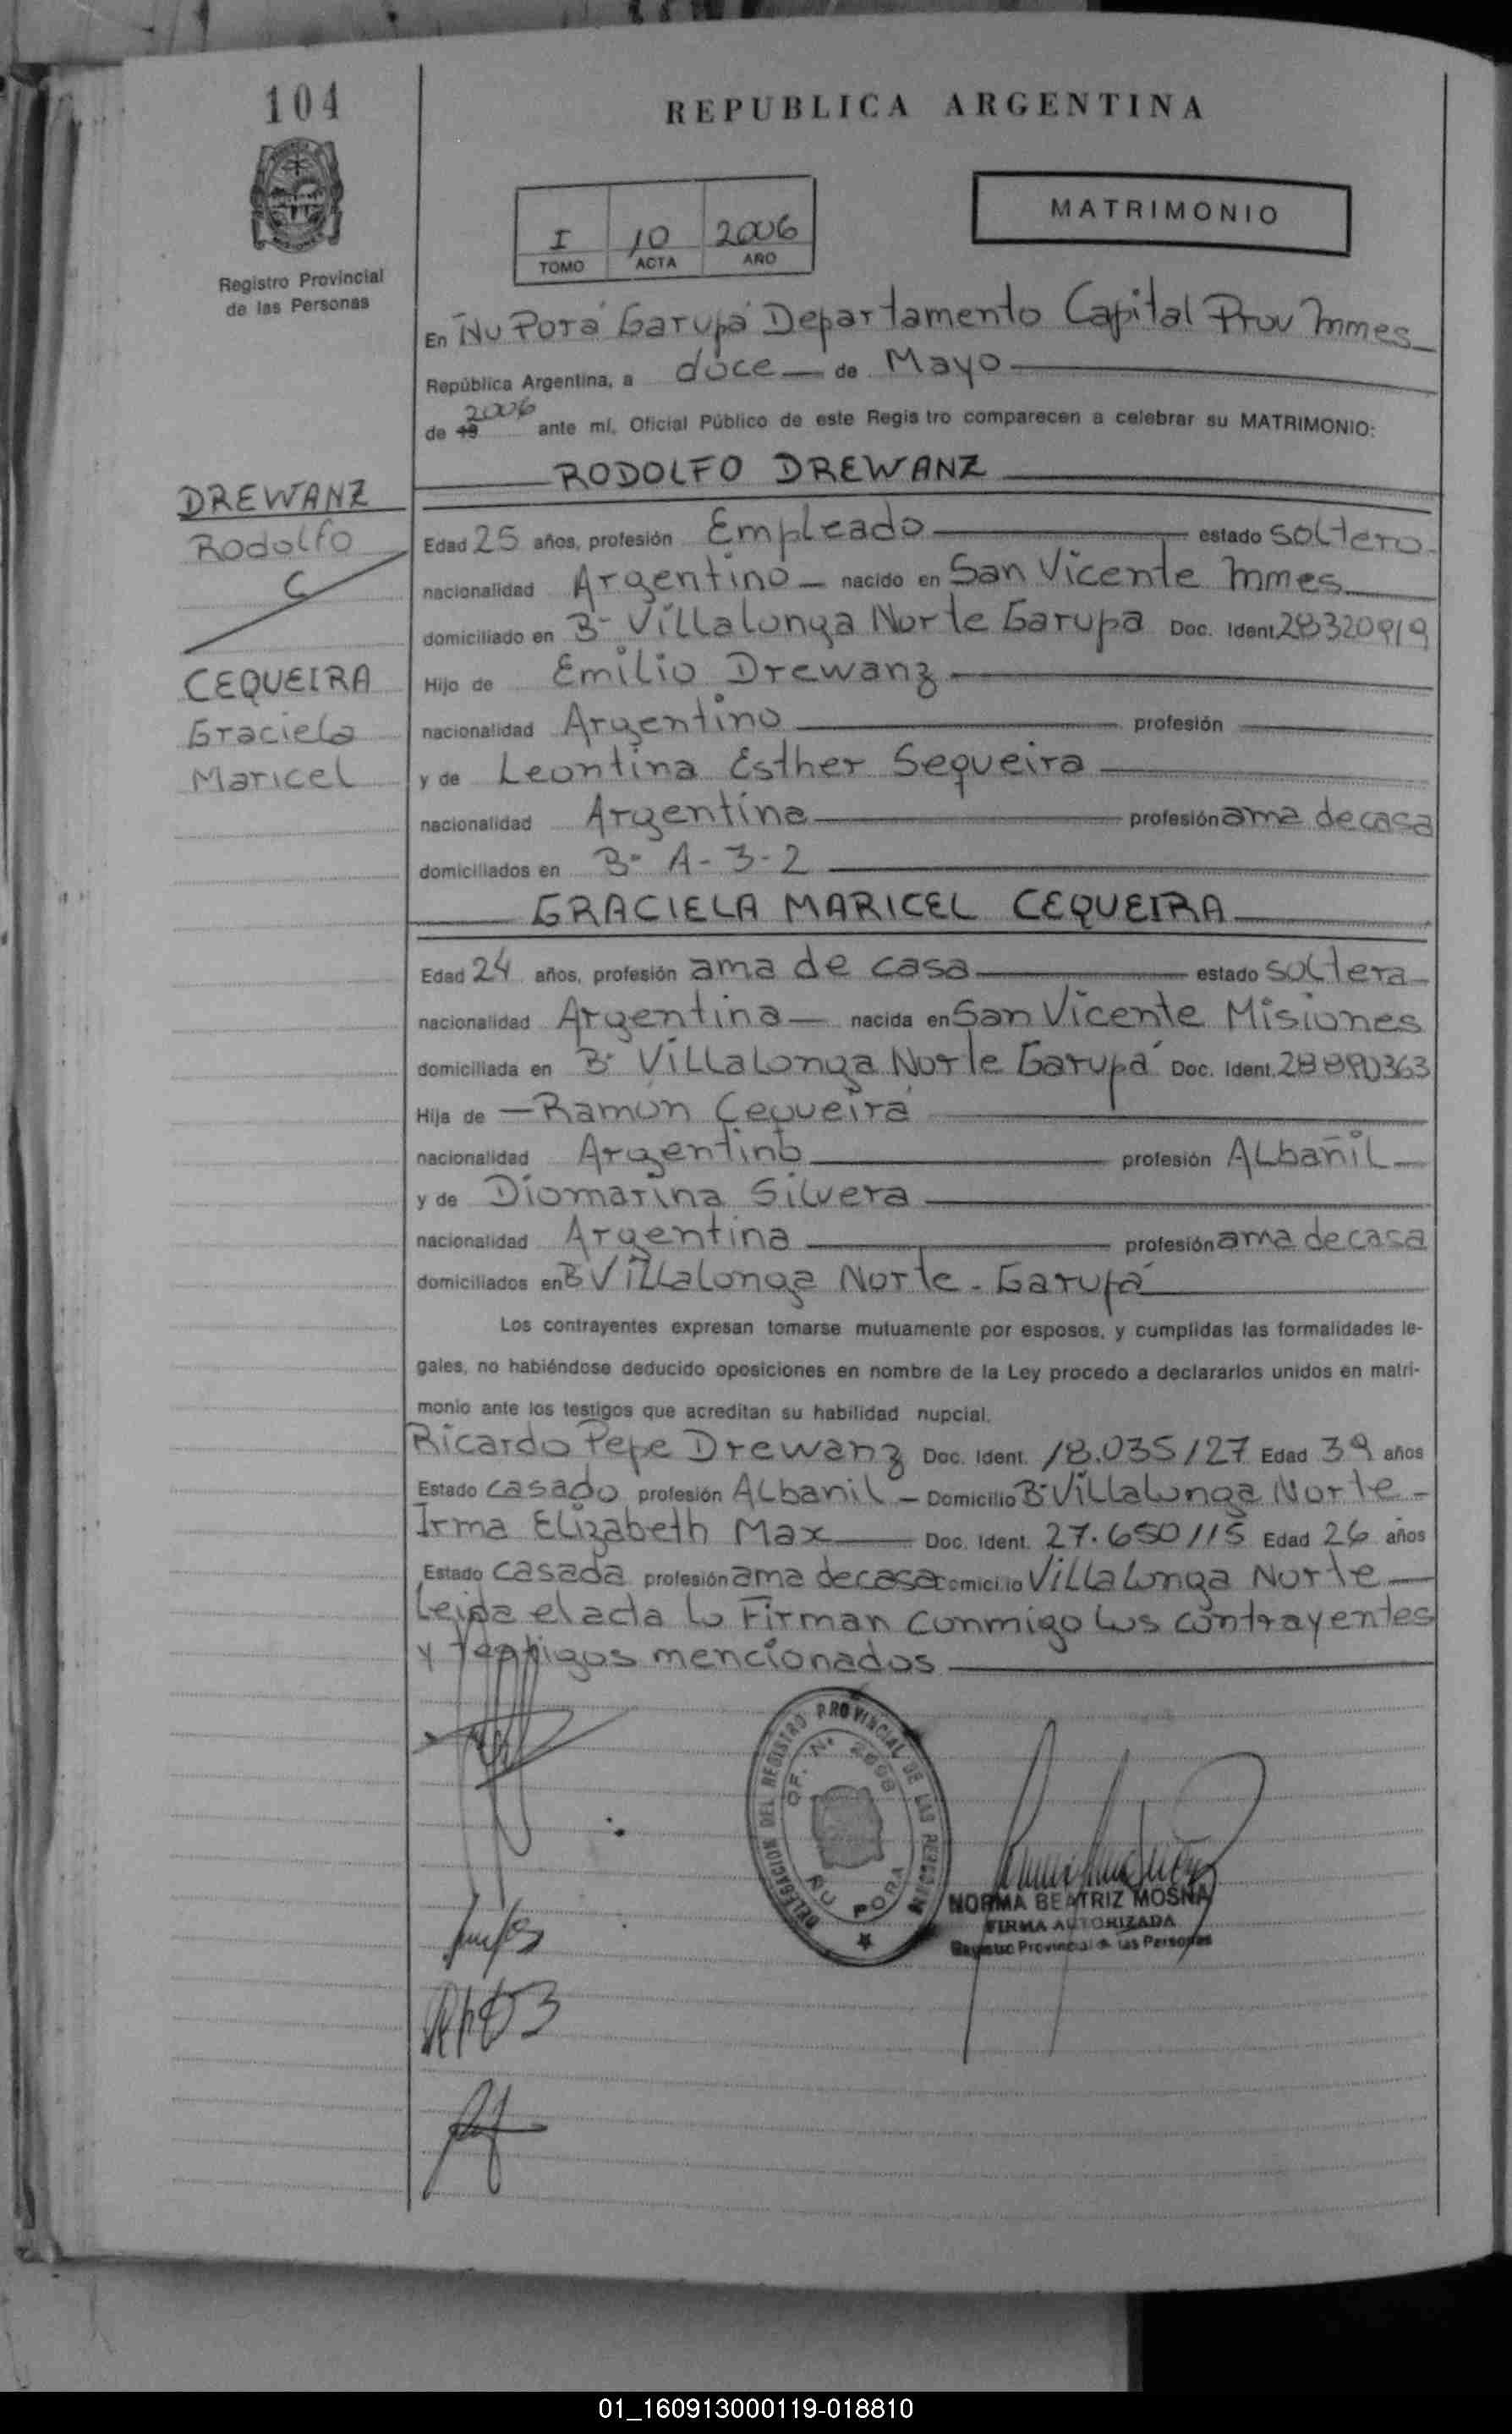 104
REPUBLICA ARGENTINA
MATRIMONIO
I 10 2006
TOMO ACTA AÑO
Registro Provincial
de las Personas
En Ñu Porá Garupá Departamento Capital Prov Mnes
República Argentina, a doce de Mayo
de 19 2006 ante mí, Oficial Público de este Registro comparecen a celebrar su MATRIMONIO:
RODOLFO DREWANZ
DREWANZ
Rodolfo
C
CEQUEIRA
Graciela
Maricel
Edad 25 años, profesión Empleado estado soltero
nacionalidad Argentino nacido en San Vicente Mnes
domiciliado en Bº Villalonga Norte Garupa Doc. Ident. 28320919
Hijo de Emilio Drewanz
nacionalidad Argentino profesión
y de Leontina Esther Sequeira
nacionalidad Argentina profesión ama de casa
domiciliados en Bº A-3-2
GRACIELA MARICEL CEQUEIRA
Edad 24 años, profesión ama de casa estado soltera
nacionalidad Argentina nacida en San Vicente Misiones
domiciliada en Bº Villalonga Norte Garupá Doc. Ident.
Hija de Ramon Cequeira
nacionalidad Argentino profesión Albañil
y de Diomarina Silvera
nacionalidad Argentina profesión ama de casa
domiciliados en B Villalonga Norte - Garupá
Los contrayentes expresan tomarse mutuamente por esposos, y cumplidas las formalidades le-
gales, no habiéndose deducido oposiciones en nombre de la Ley procedo a declararlos unidos en matri-
monio ante los testigos que acreditan su habilidad nupcial.
Ricardo Pepe Drewanz Doc. Ident. 18.035127 Edad 39 años
Estado casado profesión Albanil - Domicilio Bº Villalonga Norte -
Irma Elizabeth Max Doc. Ident. 27.650115 Edad 26 años
Estado casada profesión ama de casa Domicilio Villalonga Norte
Leida el acta lo Firman conmigo los contrayentes
y testigos mencionados
DELEGACION DEL REGISTRO PROVINCIAL DE LAS PERSONAS
OF. N. ÑU PORA
NORMA BEATRIZ MOSNA
FIRMA AUTORIZADA
Registro Provincial de las Personas
01_160913000119-018810